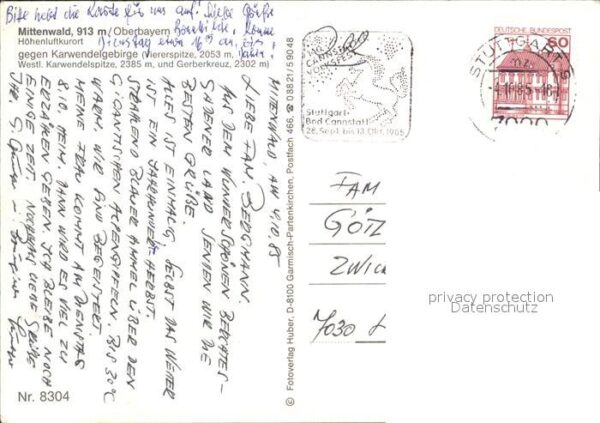 Bitte hebt die Karte für uns auf! Liebe Grüße
Mittenwald, 913 m / Oberbayern
Höhenluftkurort
Dienstag
gegen Karwendelgebirge (Viererspitze, 2053 m.
Westl. Karwendelspitze, 2385 m, und Gerberkreuz, 2302 m)
MITTENWALD, AM 4.10.85
LIEBE FAM. BERGMANN.
AUS DEM WUNDERSCHÖNEN BERCHTES-
GADENER LAND SENDEN WIR DIE
BESTEN GRÜßE.
ALLES IST EINMALIG, SELBST DAS WETTER
IST EIN JAHRHUNDERTHERBST.
STRAHLEND BLAUER HIMMEL ÜBER DEN
GIGANTISCHEN ALPENGIPFELN. BIS 30°C
WARM. WIR SIND BEGEISTERT.
MEINE FRAU KOMMT AM DIENSTAG
8.10. HEIM. DANN WIRD ES VIEL ZU
ERZÄHLEN GEBEN. ICH BLEIBE NOCH
EINIGE ZEIT. NOCHMALS LIEBE GRÜßE
IHR
Nr. 8304
© Fotoverlag Huber, D-8100 Garmisch-Partenkirchen, Postfach 466, ☎ 08821/59048
CANNSTATTER
VOLKSFEST
Stuttgart-
Bad Cannstatt
28. Sept. bis 13. Okt. 1985
DEUTSCHE BUNDESPOST
60
STUTTGART
7000
FAM
GÖTZ
ZWICK
7030
privacy protection
Datenschutz